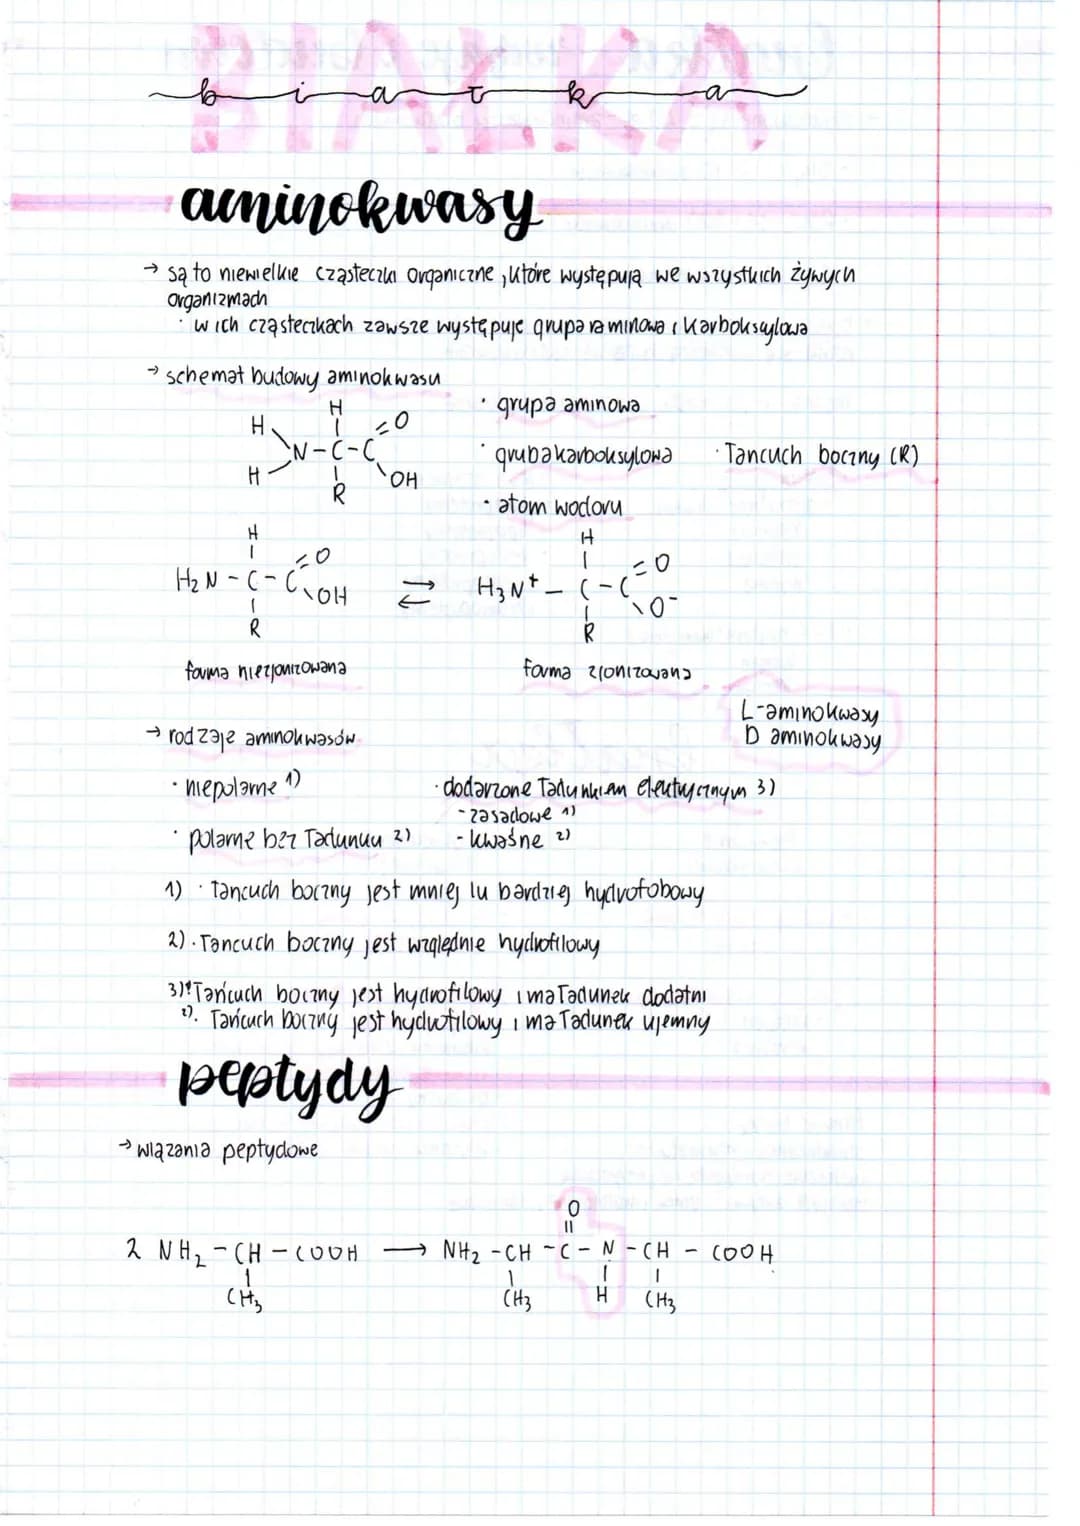 BIAŁKA
białka
aminokwasy
→ są to niewielkie cząsteczki organiczne, które występują we wszystkich żywych
organizmach
· w ich cząsteczkach zawsze występuje grupa aminowa i karboksylowa
→ schemat budowy aminokwasu
· grupa aminowa
· gruba karboksylowa · Łańcuch boczny (R)
· atom wodoru
H
H O
N-C-C
H R OH
H H
H2N - C - C O OH ⇄ H3N+ - C - C O O-
R R
forma niezjonizowana forma zjonizowana
L-aminokwasy
D aminokwasy
→ rodzaje aminokwasów
· niepolarne 1) · dodarzone Ładunkiem elektrycznym 3)
- zasadowe 1)
· polarne bez Ładunku 2) - kwaśne 2)
1) · Łańcuch boczny jest mniej lu bardziej hydrofobowy
2) · Łańcuch boczny jest względnie hydrofilowy
3) 1) Łańcuch boczny jest hydrofilowy i ma Ładunek dodatni
2). Łańcuch boczny jest hydrofilowy i ma Ładunek ujemny
peptydy
→ wiązania peptydowe
O
||
2 NH2 - CH - COOH → NH2 - CH - C - N - CH - COOH
CH3 CH3 H CH3